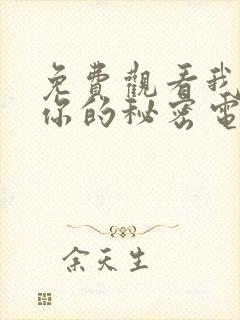 免費觀看我
你的秘密電
余天生